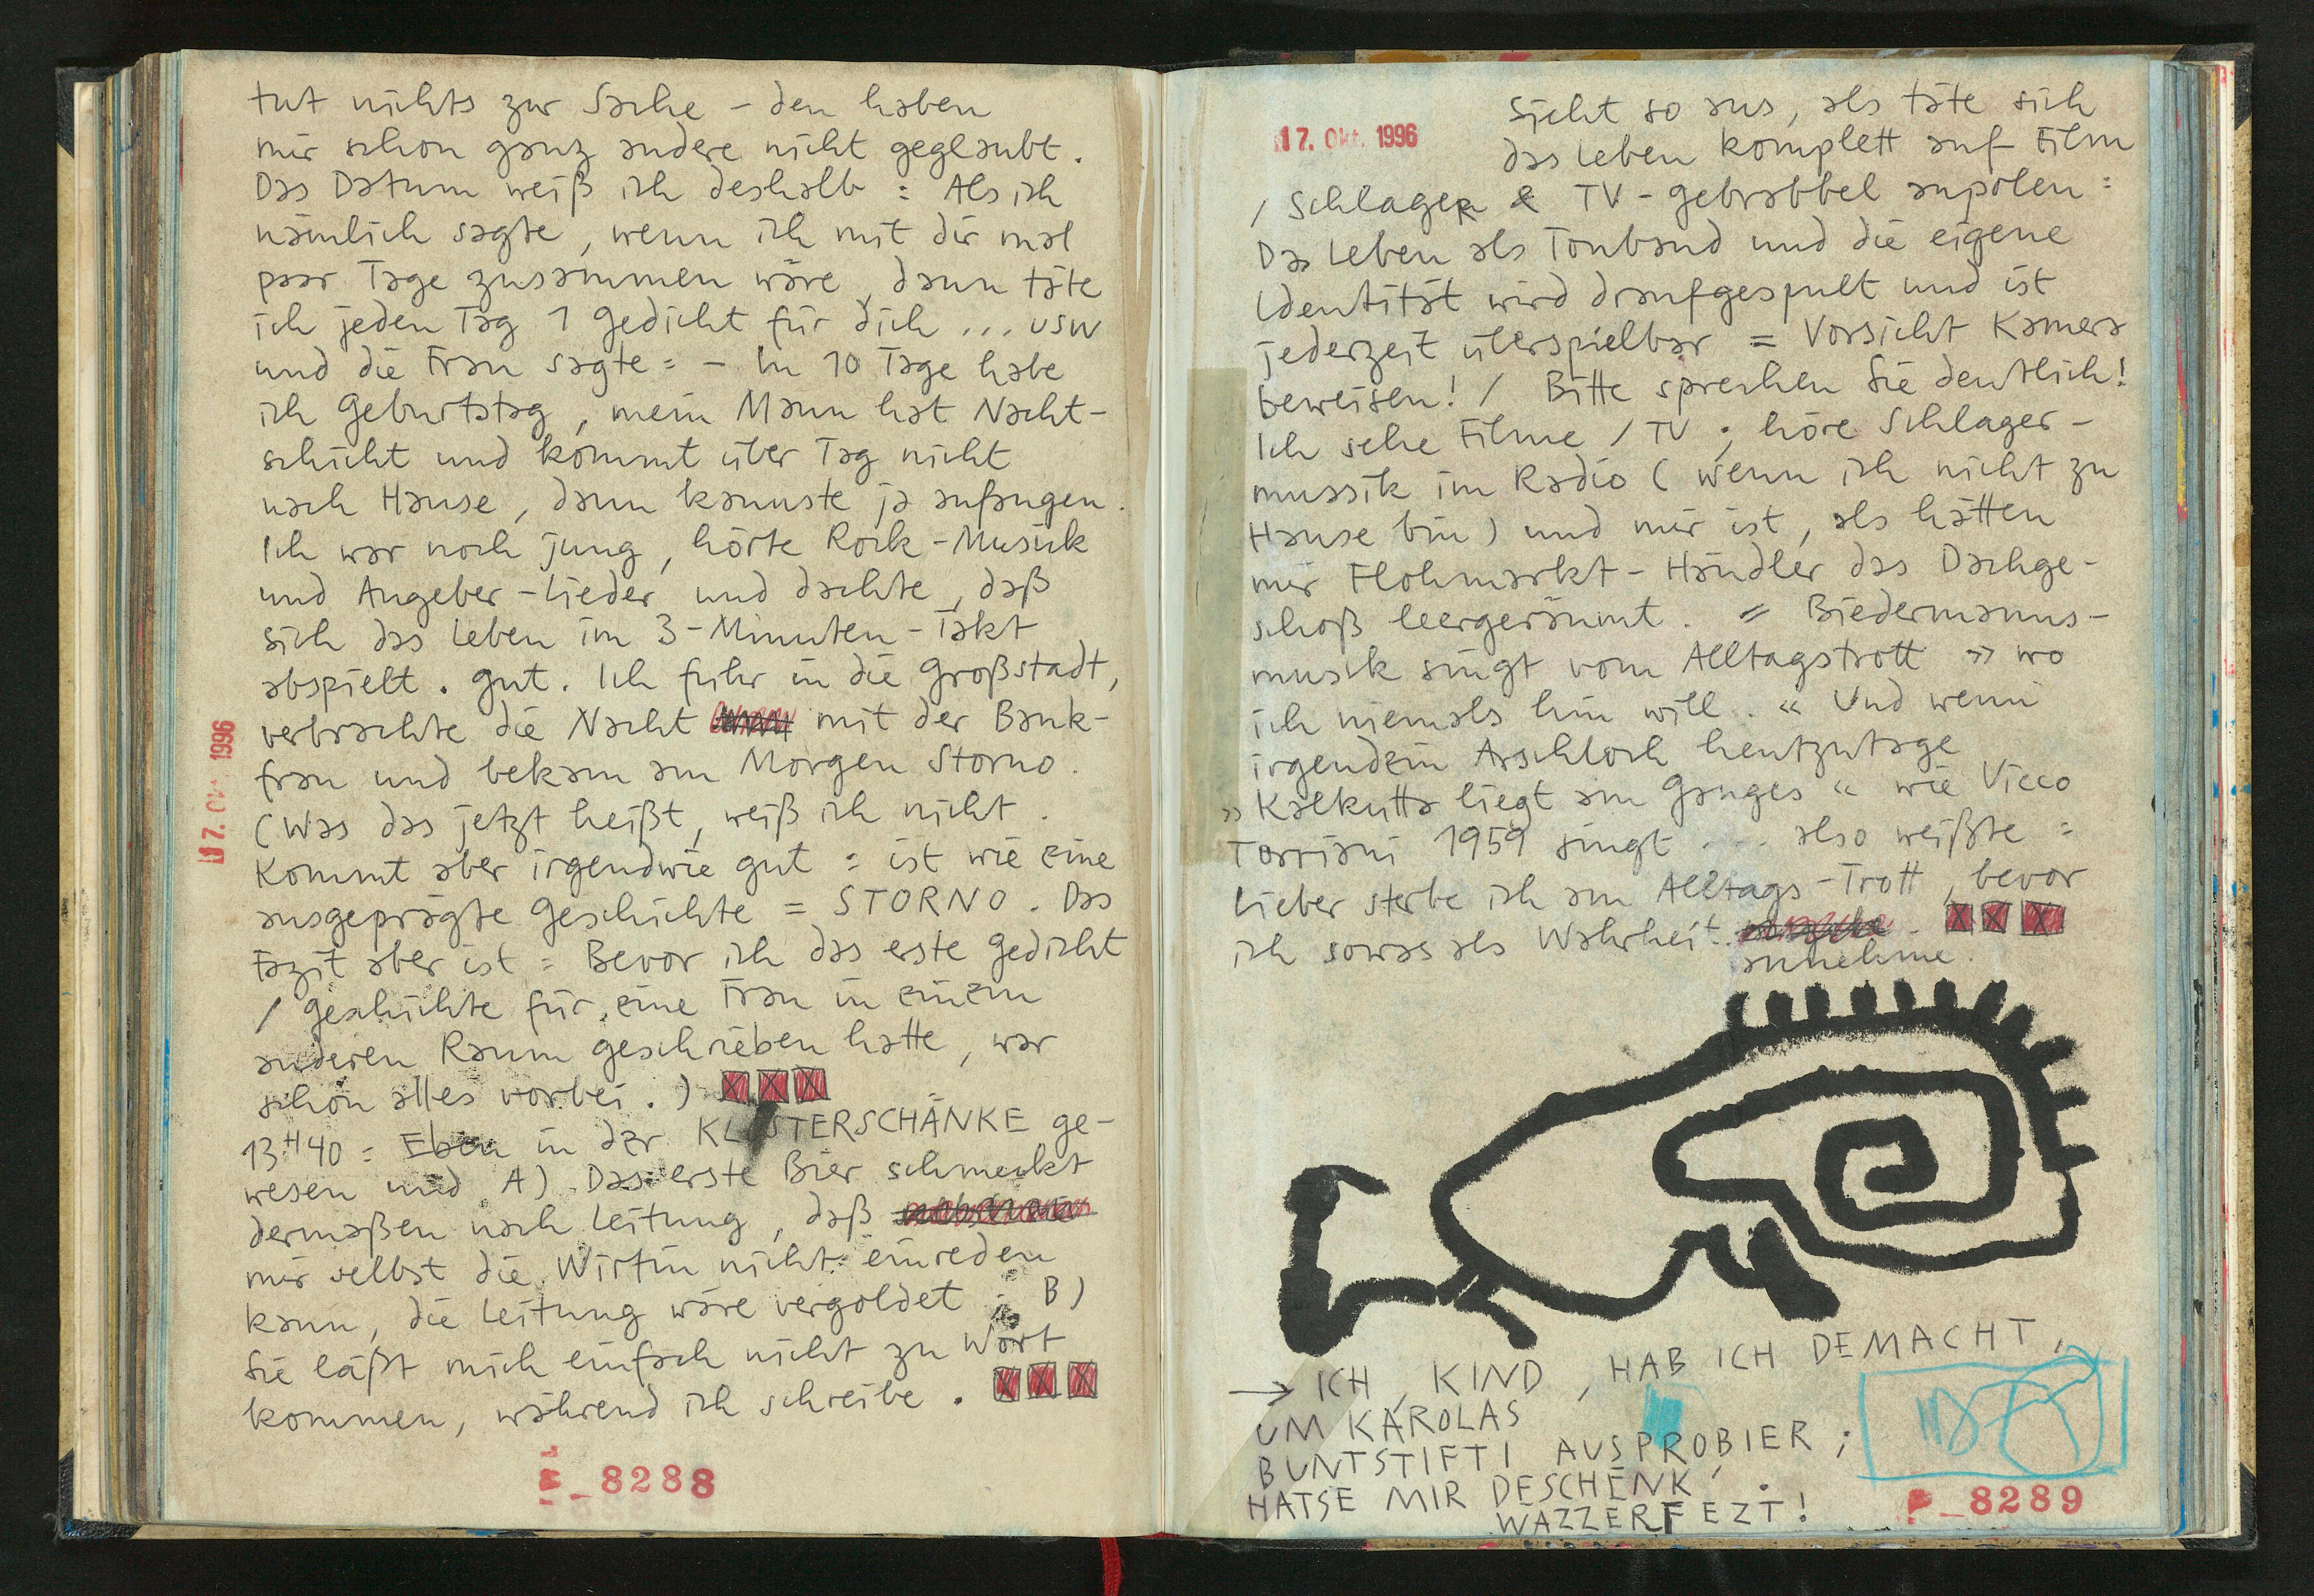 tut nichts zur Sache – den haben
mir schon ganz andere nicht geglaubt.
Das Datum weiß ich deshalb = Als ich
nämlich sagte, wenn ich mit dir mal
paar Tage zusammen wäre, dann täte
ich jeden Tag 1 Gedicht für dich ... usw
und die Frau sagte = – In 10 Tage habe
ich Geburtstag, mein Mann hat Nacht-
schicht und kommt über Tag nicht
nach Hause, dann kannste ja anfangen.
Ich war noch jung, hörte Rock-Musik
und Angeber-Lieder und dachte, daß
sich das Leben im 3-Minuten-Takt
abspielt. Gut. Ich fuhr in die Großstadt,
verbrachte die Nacht mit der Bank-
frau und bekam am Morgen Storno.
(Was das jetzt heißt, weiß ich nicht.
Kommt aber irgendwie gut = ist wie eine
ausgeprägte Geschichte = STORNO. Das
Fazit aber ist = Bevor ich das erste Gedicht
/ Geschichte für eine Frau in einem
anderen Raum geschrieben hatte, war
schon alles vorbei.)
13H40 = Eben in der KLOSTERSCHÄNKE ge-
wesen und A) Das erste Bier schmeckt
dermaßen nach Leitung, daß
mir selbst die Wirtin nicht einreden
kann, die Leitung wäre vergoldet; B)
Sie läßt mich einfach nicht zu Wort
kommen, während ich schreibe.
17. Okt. 1996
8288
17. Okt. 1996
Sieht so aus, als täte sich
das Leben komplett auf Film
/ Schlager & TV-Gebrabbel anpolen =
Das Leben als Tonband und die eigene
Identität wird draufgespult und ist
jederzeit überspielbar = Vorsicht Kamera
beweisen! / Bitte sprechen Sie deutlich!
Ich sehe Filme / TV; höre Schlager-
mussik im Radio (wenn ich nicht zu
Hause bin) und mir ist, als hätten
mir Flohmarkt-Händler das Dachge-
schoß leergeräumt. = Biedermanns-
musik singt vom Alltagstrott » wo
ich niemals hin will. « Und wenn
irgendein Arschloch heutzutage
» Kalkutta liegt am Ganges « wie Vicco
Torriani 1959 singt ... also weißte =
Lieber sterbe ich am Alltags-Trott, bevor
ich sowas als Wahrheit
annehme.
→ ICH, KIND, HAB ICH DEMACHT,
UM KAROLAS
BUNTSTIFTI AUSPROBIER;
HATSE MIR DESCHENK.
WAZZERFEZT!
P_8289